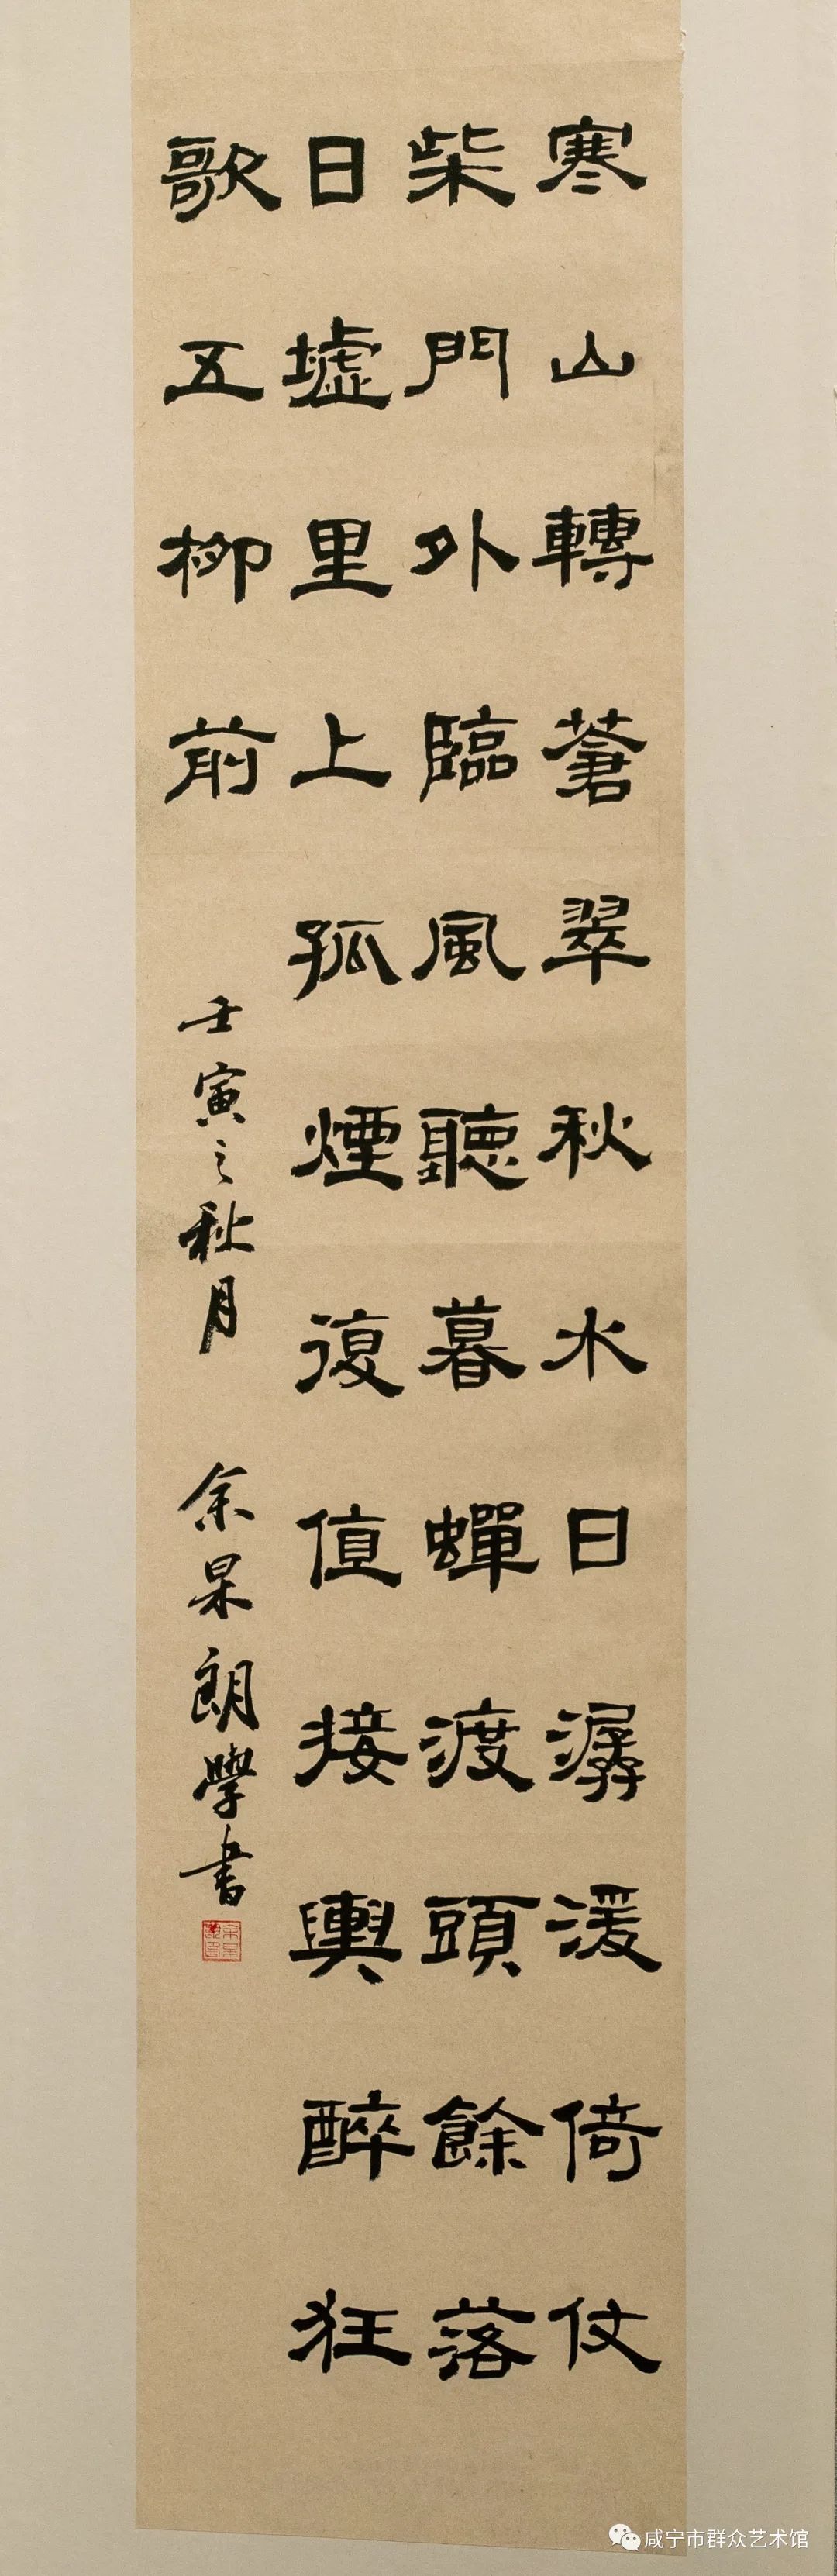 寒山轉蒼翠秋水日潺湲倚仗
柴門外臨風聽暮蟬渡頭餘落
日墟里上孤煙復值接輿醉狂
歌五柳前
壬寅之秋月 余杲朗學書
咸宁市群众艺术馆